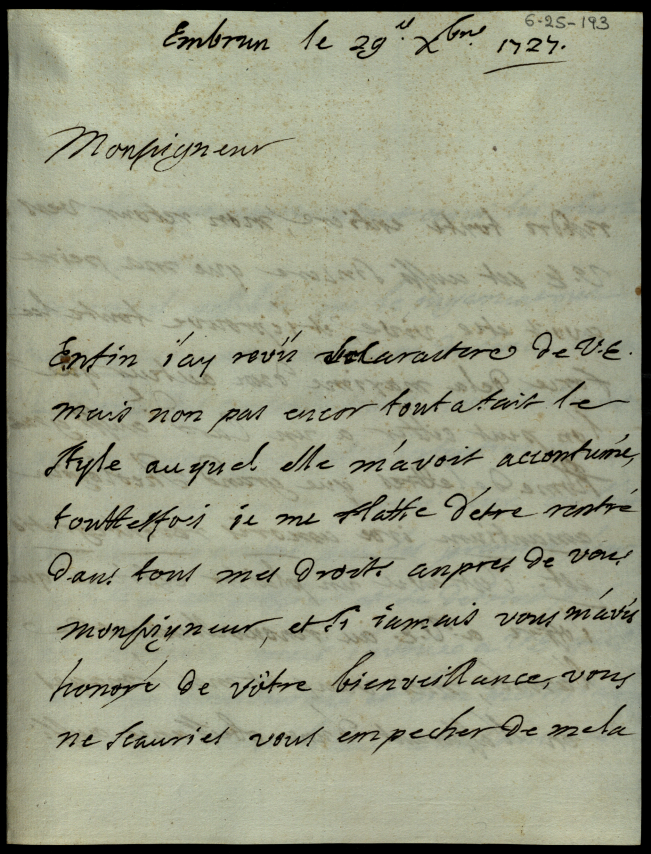 6-25-193
Embrun le 29e Xbre 1727.
Monsigneur
Enfin i'ay revû le caractere de V.E.
mais non pas encor tout a fait le
style auquel elle m'avoit accoutumé,
touttesfois ie me flatte d'etre rentré
dans tous mes droits aupres de vous
monsigneur, et si iamais vous m'avés
honoré de vôtre bienveillance, vous
ne scauries vous empecher de me la